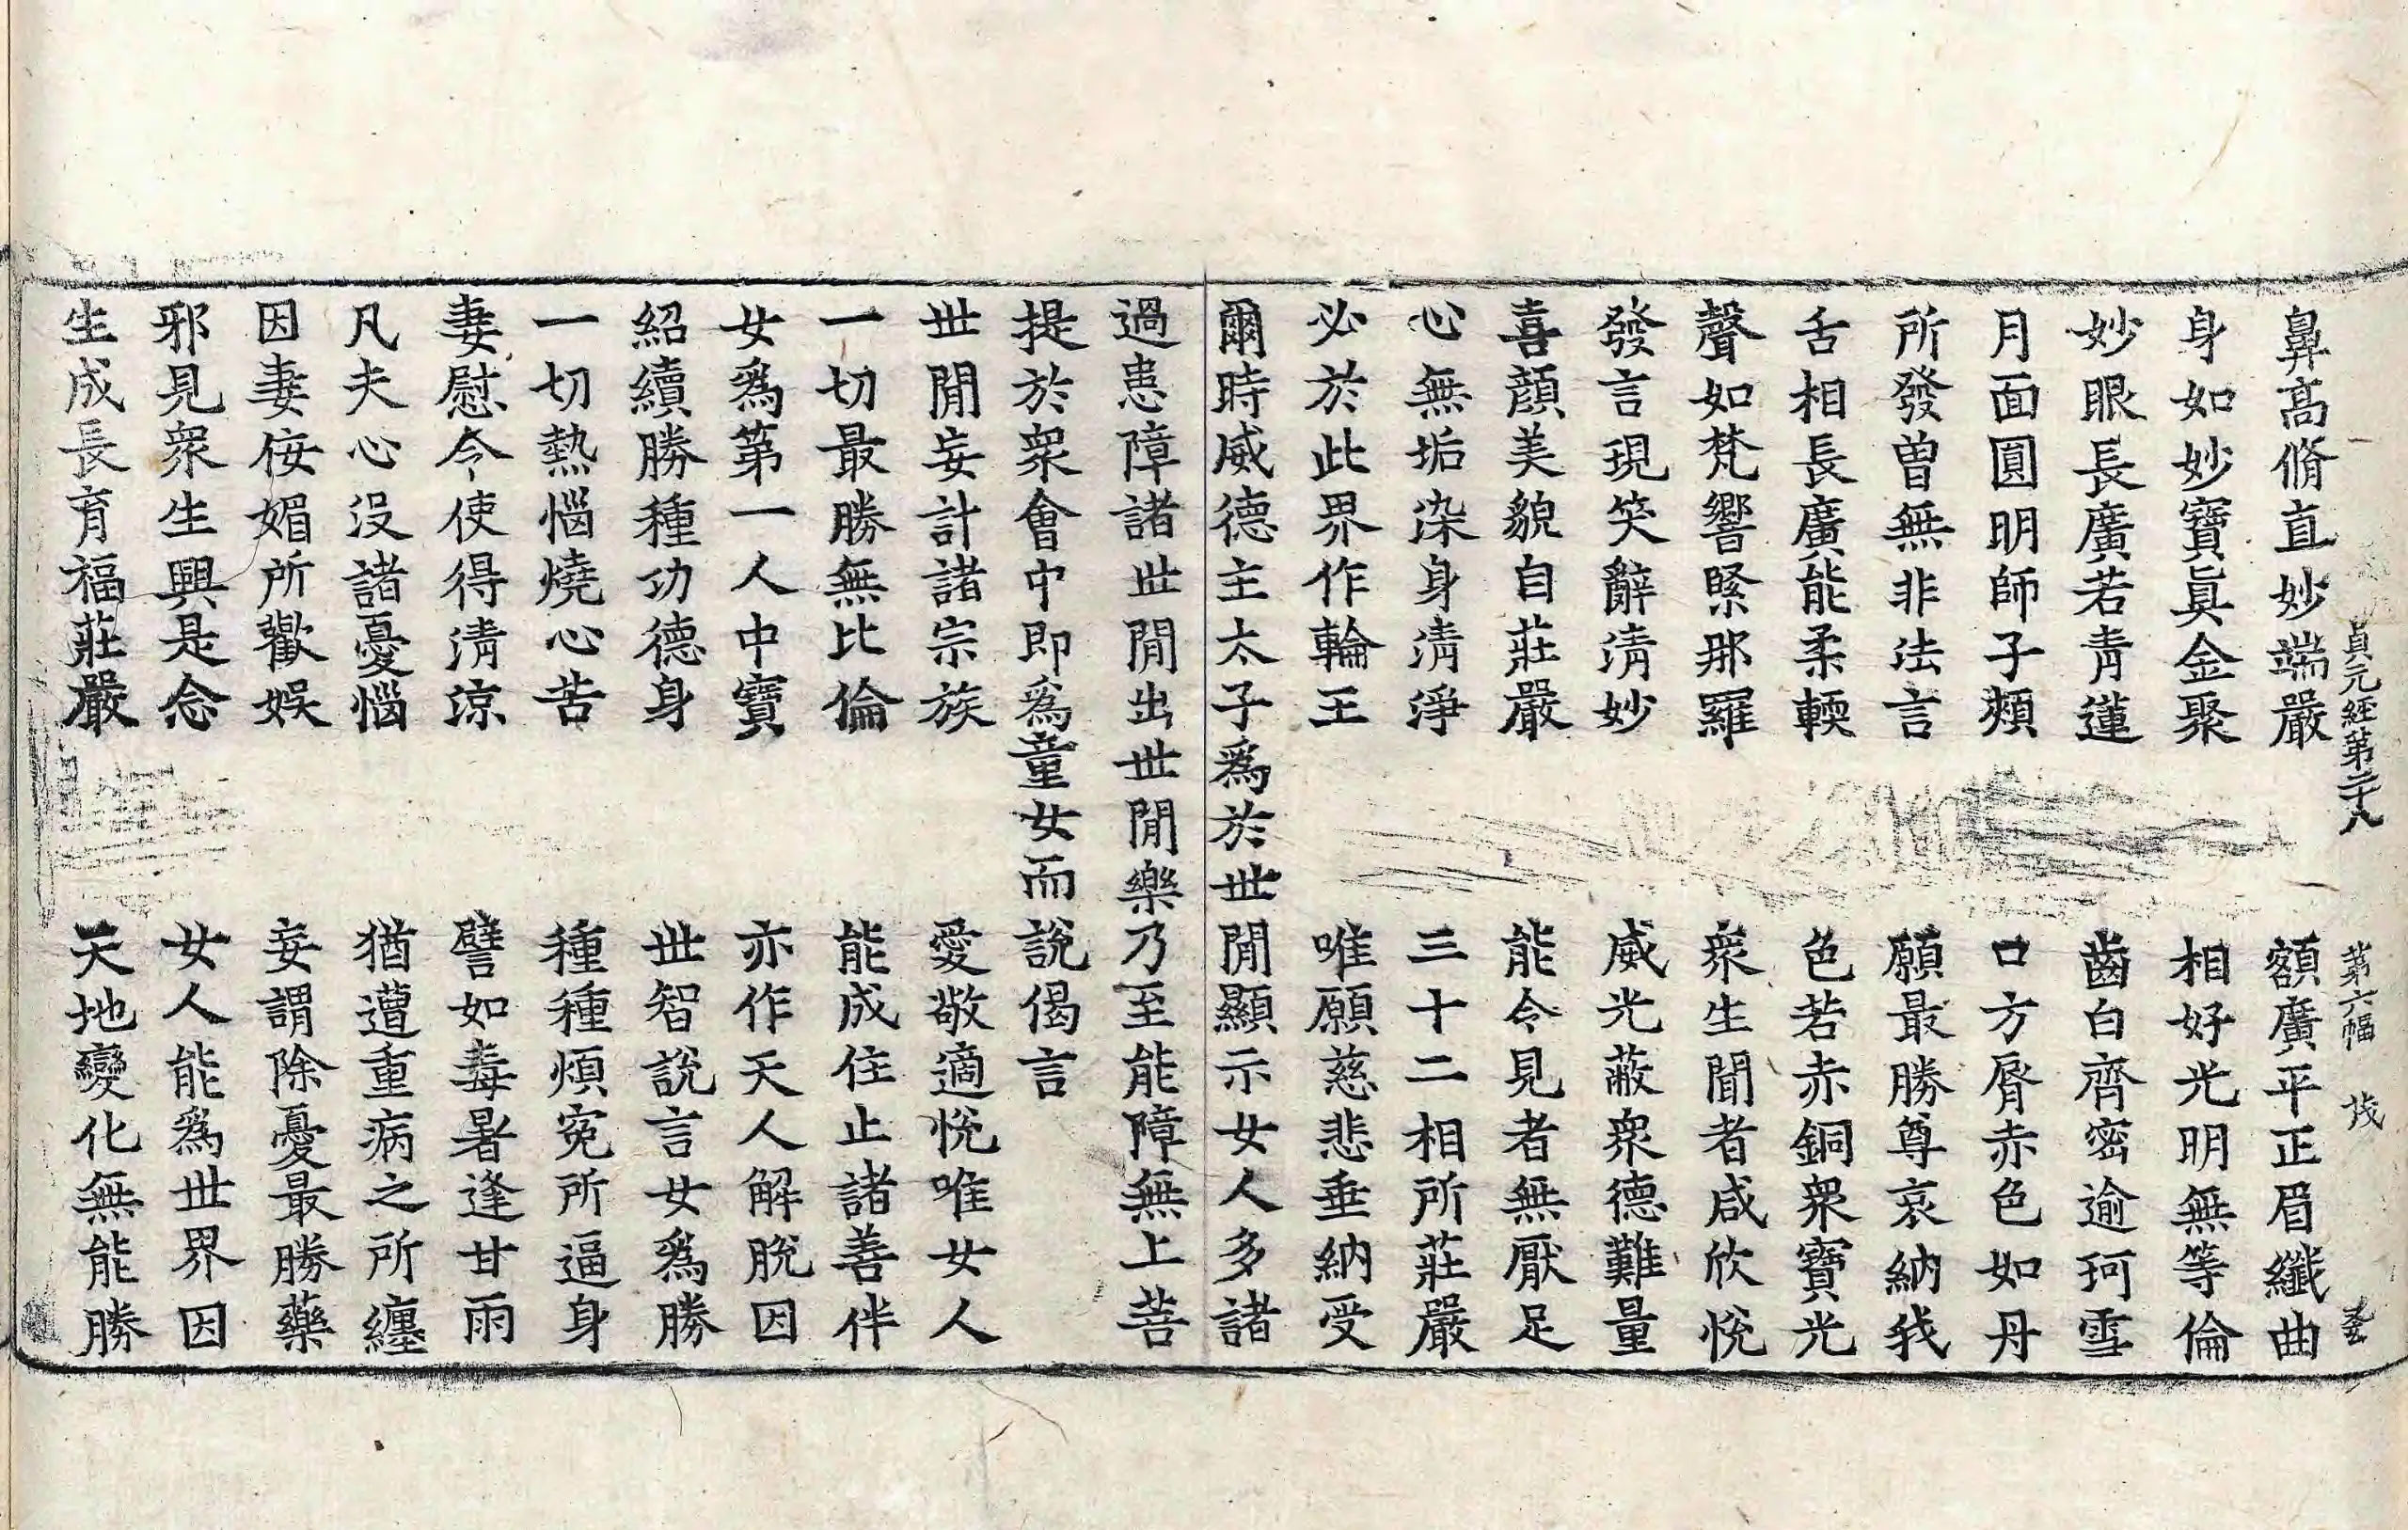 貞元経第二十八 第六幅 茂
鼻高脩直妙端嚴 額廣平正眉纖曲
身如妙寶眞金聚 相好光明無等倫
妙眼長廣若青蓮 齒白齊密逾珂雪
月面圓明師子頰 口方脣赤色如丹
所發曾無非法言 願最勝尊哀納我
舌相長廣能柔輭 色若赤銅衆寶光
聲如梵響緊那羅 衆生聞者咸欣悅
發言現笑辭淸妙 威光蔽衆德難量
喜顔美貌自莊嚴 能令見者無厭足
心無垢染身淸淨 三十二相所莊嚴
必於此界作輪王 唯願慈悲垂納受
爾時威德主太子爲於世閒顯示女人多諸
過患障諸世閒出世閒樂乃至能障無上菩
提於衆會中即爲童女而說偈言
世閒妄計諸宗族 愛敬適悅唯女人
一切最勝無比倫 能成住止諸善伴
女爲第一人中寶 亦作天人解脫因
紹續勝種功德身 世智說言女爲勝
一切熱惱燒心苦 種種煩寃所逼身
妻慰令使得淸涼 譬如毒暑逢甘雨
凡夫心沒諸憂惱 猶遭重病之所纏
因妻侒媚所歡娛 妄謂除憂最勝藥
邪見衆生興是念 女人能爲世界因
生成長育福莊嚴 天地變化無能勝